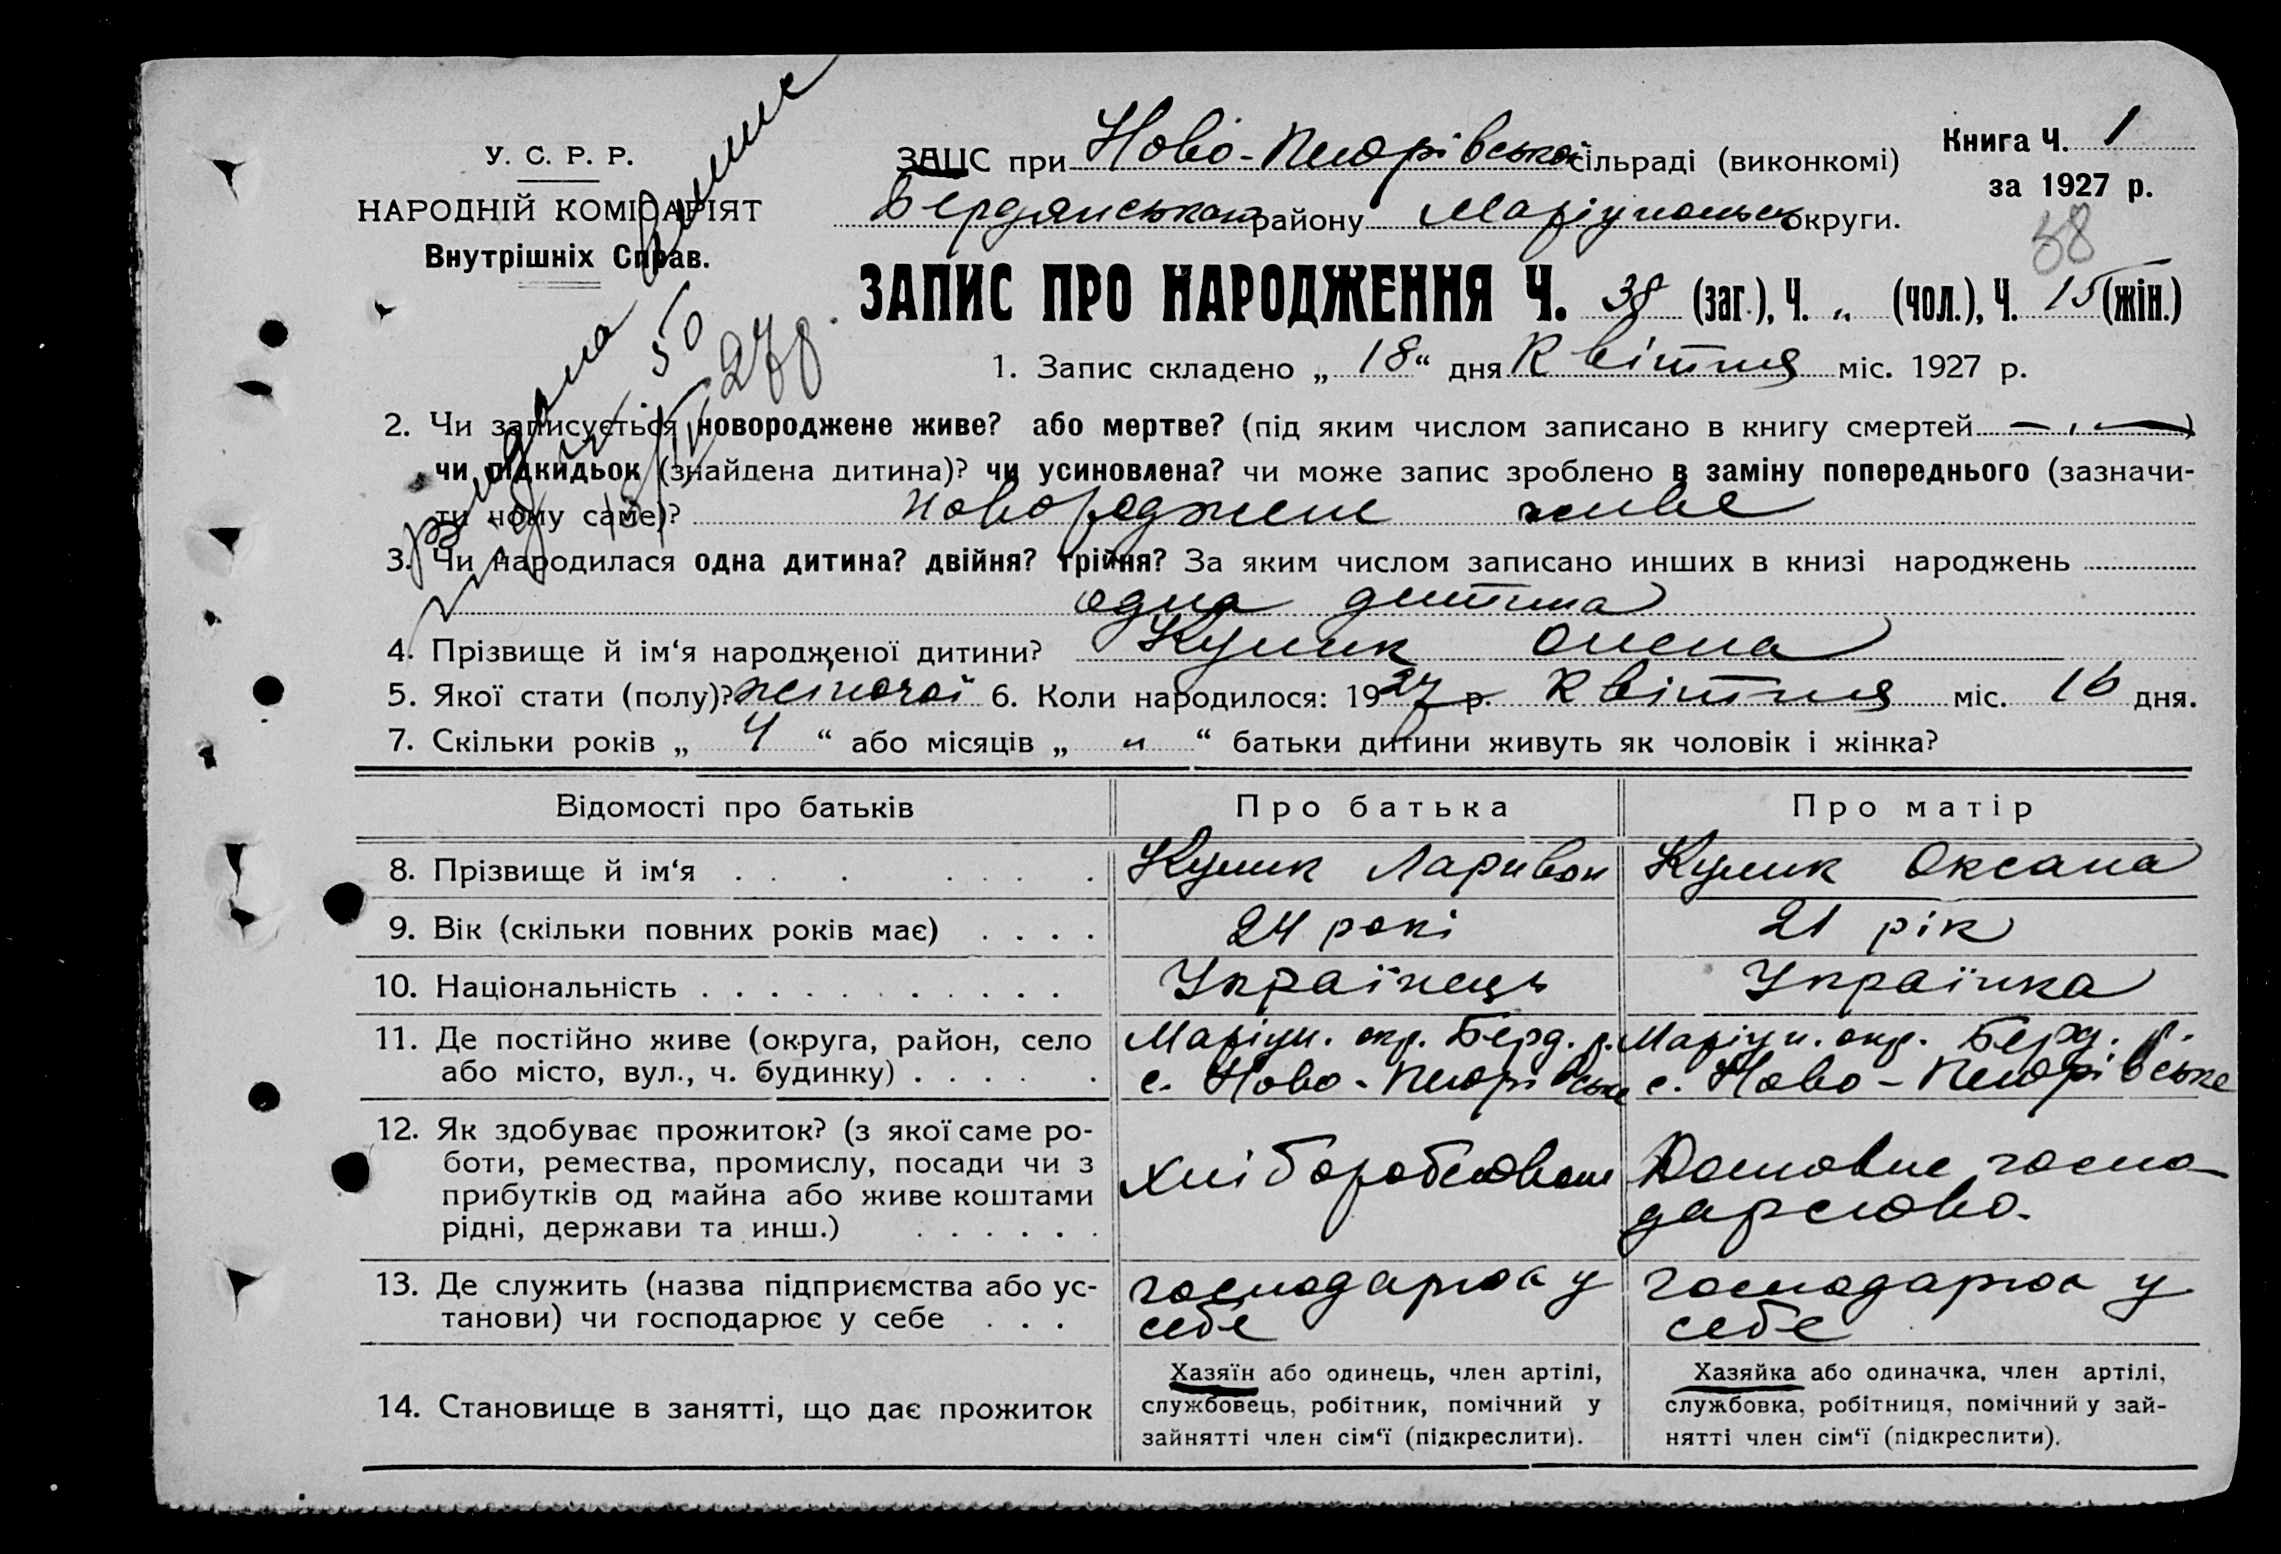 У. С. Р. Р.
НАРОДНІЙ КОМІСАРІЯТ
Внутрішніх Справ.
ЗАЦС при Ново-Петрівській сільраді (виконкомі)
Бердянського району Маріупольск округи.
Книга Ч. 1
за 1927 р.
38
ЗАПИС ПРО НАРОДЖЕННЯ Ч. 38 (заг.), Ч. „ (чол.), Ч. 15 (жін.)
видана випис
під ч. 50
18/IV 27р.
1. Запис складено „ 18 “ дня Квітня міс. 1927 р.
2. Чи записується новороджене живе? або мертве? (під яким числом записано в книгу смертей — , —)
чи підкидьок (знайдена дитина)? чи усиновлена? чи може запис зроблено в заміну попереднього (зазначи-
ти чому саме)? новороджене живе
3. Чи народилася одна дитина? двійня? трійня? За яким числом записано инших в книзі народжень
одна дитина
4. Прізвище й ім‘я народженої дитини? Кулик Олена
5. Якої стати (полу)? жіночої 6. Коли народилося: 1927 р. Квітня міс. 16 дня.
7. Скільки років „ 4 “ або місяців „ „ “ батьки дитини живуть як чоловік і жінка?
Відомості про батьків Про батька Про матір
8. Прізвище й ім‘я Кулик Ларивон Кулик Оксана
9. Вік (скільки повних років має) 24 рокі 21 рік
10. Національність Українець Українка
11. Де постійно живе (округа, район, село
або місто, вул., ч. будинку)
Маріуп. окр. Берд. р.
с. Ново-Петрівське
Маріуп. окр. Берд. р.
с. Ново-Петрівське
12. Як здобуває прожиток? (з якої саме ро-
боти, ремества, промислу, посади чи з
прибутків од майна або живе коштами
рідні, держави та инш.)
хліборобством
Домовне госпо-
дарство.
13. Де служить (назва підприємства або ус-
танови) чи господарює у себе
господарює у
себе
господарює у
себе
14. Становище в занятті, що дає прожиток
Хазяїн або одинець, член артілі,
службовець, робітник, помічний у
зайнятті член сім‘ї (підкреслити).
Хазяйка або одиначка, член артілі,
службовка, робітниця, помічний у зай-
нятті член сім‘ї (підкреслити).